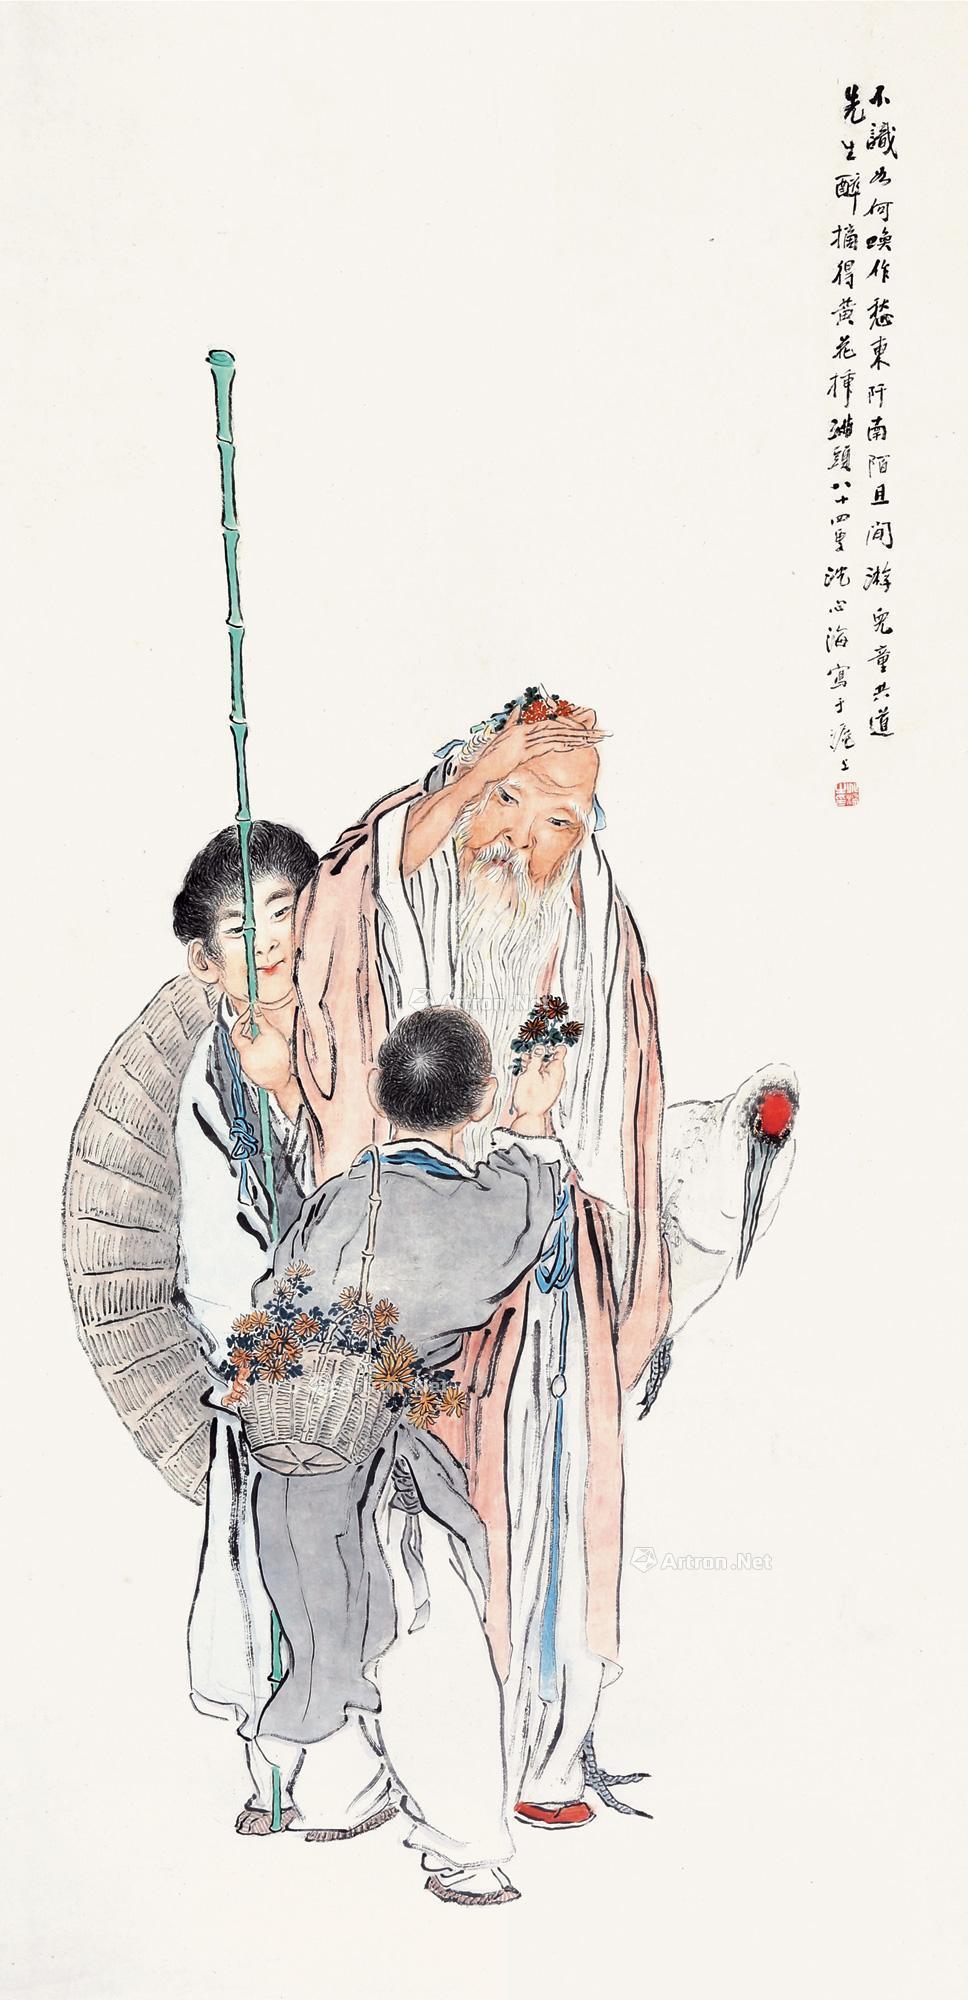 不識如何喚作愁東阡南陌且閒游兒童共道
先生醉摘得黃花插滿頭八十四叟沈心海寫于滬上
Artron.Net
Artron.Net